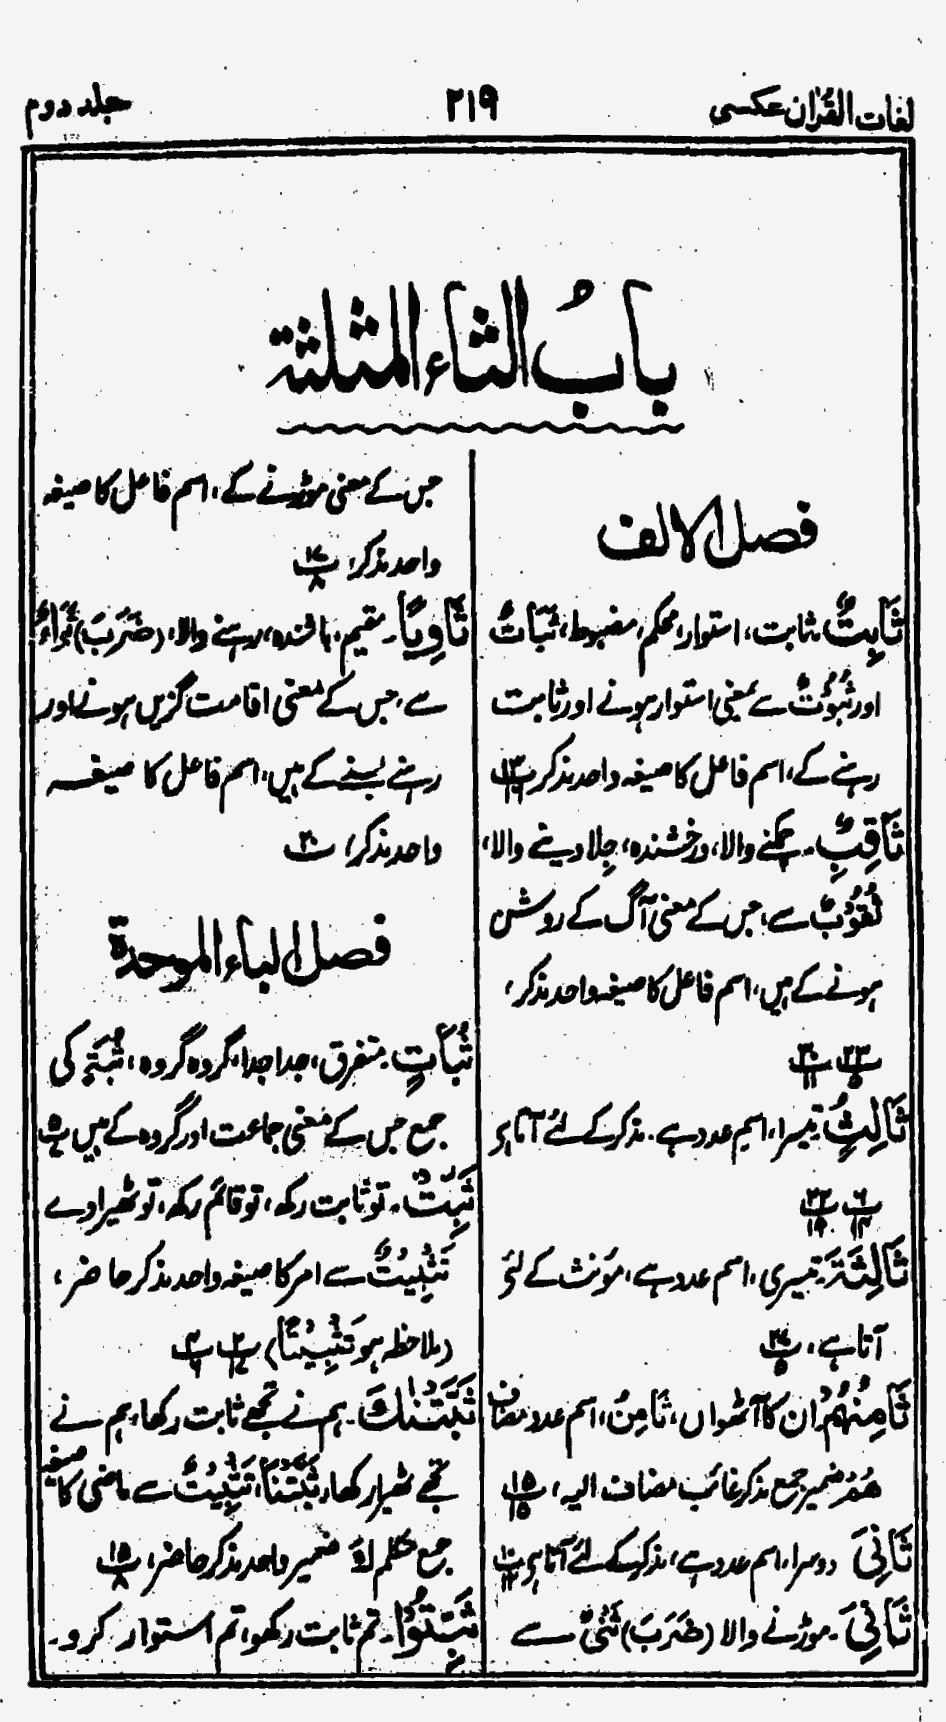 لغات القرآن عکسی
۲۱۹
جلد دوم
بابُ الثاء المثلثۃ
فصل الالف
ثَابِتٌ ثابت، استوار، محکم، مضبوط، ثَبَاتٌ
اور ثُبُوْتٌ سے بمعنی استوار ہونے اور ثابت
رہنے کے، اسم فاعل کا صیغہ واحد مذکر
ثَاقِبٌ۔ چمکنے والا، درخشندہ، جلا دینے والا،
ثُقُوْبٌ سے، جس کے معنی آگ کے روشن
ہونے کے ہیں، اسم فاعل کا صیغہ واحد مذکر،
پ۲۳/۵ پ۳۰/۱۱
ثَالِثُ تیسرا، اسم عدد ہے۔ مذکر کے لئے آتا ہے
پ۶/۱۴ پ۲۲/۱۵
ثَالِثَۃَ۔ تیسری، اسم عدد ہے، مؤنث کے لئے
آتا ہے، پ۲۷/۵
ثَامِنُہُمْ ان کا آٹھواں، ثَامِنُ، اسم عدد مضاف
ھُمْ ضمیر جمع مذکر غائب مضاف الیہ، پ۱۵/۱۵
ثَانِیَ دوسرا، اسم عدد ہے، مذکر کے لئے آتا ہے پ۱۰/۱۲
ثَانِیَ۔ موڑنے والا (ضَرَبَ) ثَنْیٌ سے
جس کے معنی موڑنے کے، اسم فاعل کا صیغہ
واحد مذکر، پ۱۷/۸
ثَاوِیًا۔ مقیم، باشندہ، رہنے والا، (ضَرَبَ) ثَوَاءٌ
سے، جس کے معنی اقامت گزیں ہونے اور
رہنے بسنے کے ہیں، اسم فاعل کا صیغہ
واحد مذکر، پ۲۰
فصل الباء الموحدۃ
ثُبَاتٍ۔ متفرق، جدا جدا، گروہ گروہ، ثُبَۃٍ کی
جمع جس کے معنی جماعت اور گروہ کے ہیں پ۵
ثَبِّتْ۔ تو ثابت رکھ، تو قائم رکھ، تو ٹھیرا دے
تَثْبِیْتٌ سے امر کا صیغہ واحد مذکر حاضر،
(ملاحظہ ہو تَثْبِیْتًا) پ۲/۱۷ پ۴/۷
ثَبَّتْنٰکَ۔ ہم نے تجھے ثابت رکھا، ہم نے
تجھے ٹھیرا رکھا، ثَبَّتْنَا، تَثْبِیْتٌ سے ماضی کا صیغہ
جمع متکلم لَکَ ضمیر واحد مذکر حاضر، پ۱۵/۸
ثَبِّتُوْا۔ تم ثابت رکھو، تم استوار کرو۔